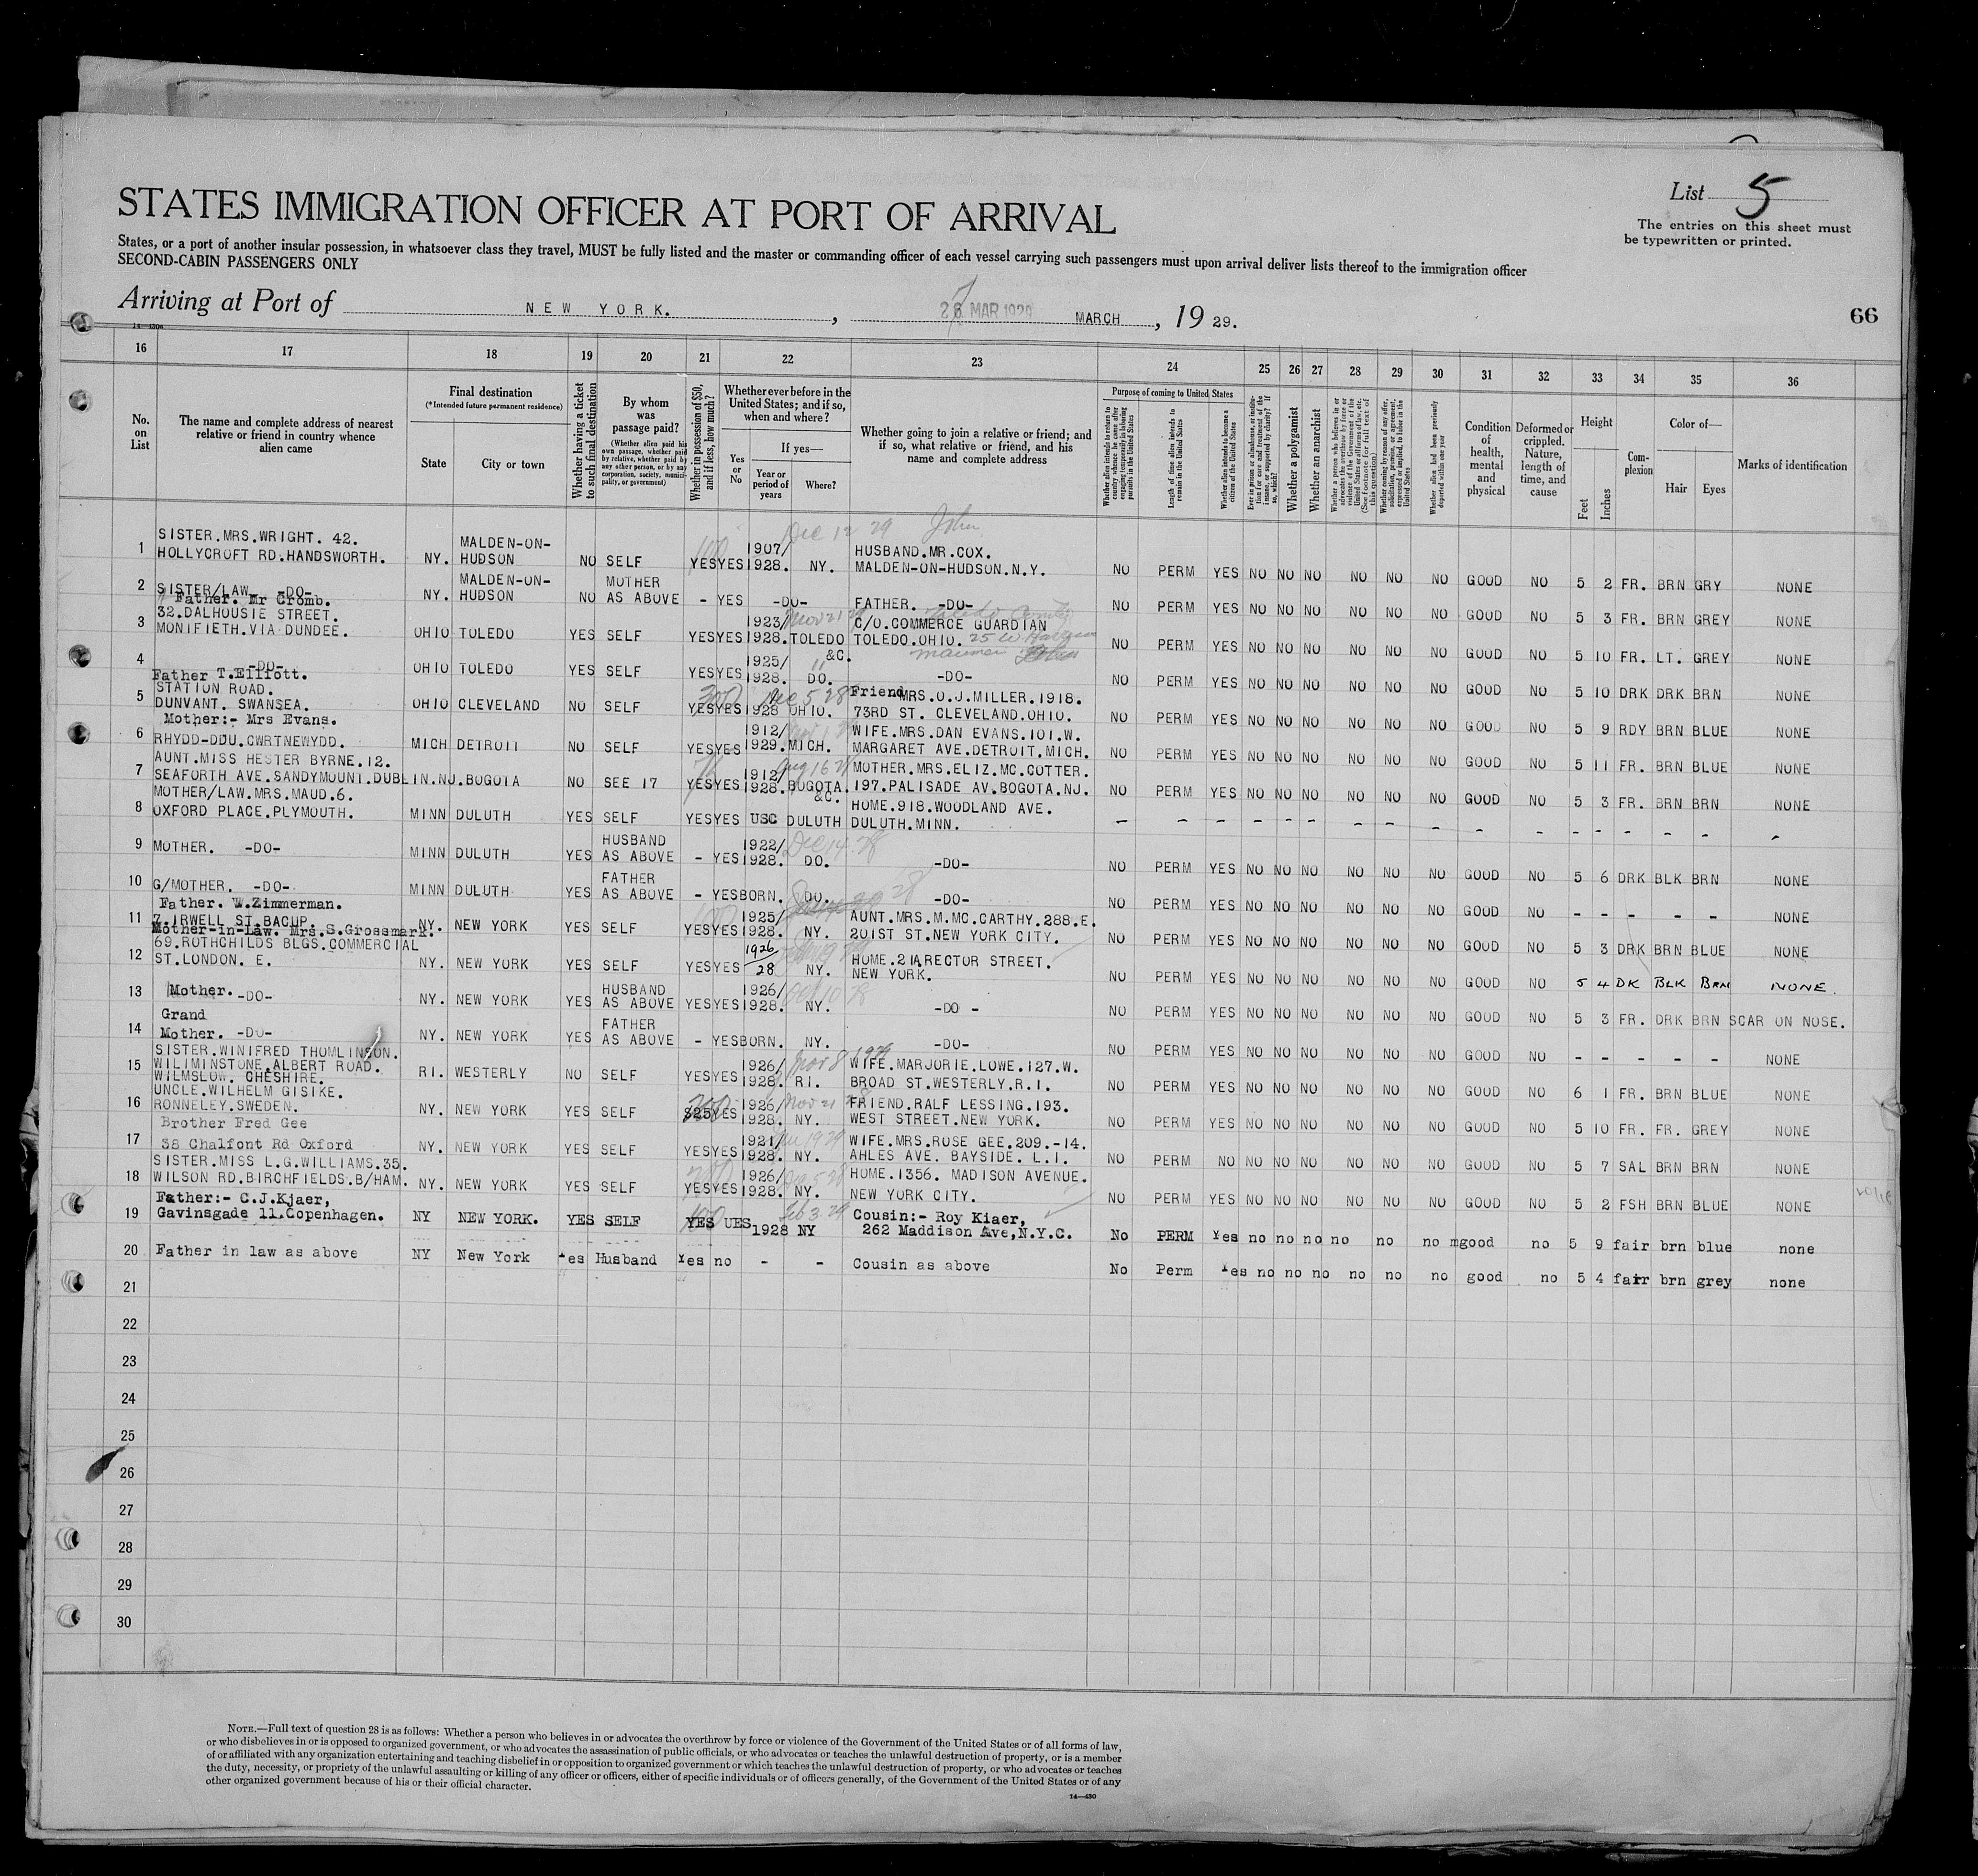 List 5
The entries on this sheet must
be typewritten or printed.
STATES IMMIGRATION OFFICER AT PORT OF ARRIVAL
States, or a port of another insular possession, in whatsoever class they travel, MUST be fully listed and the master or commanding officer of each vessel carrying such passengers must upon arrival deliver lists thereof to the immigration officer
SECOND-CABIN PASSENGERS ONLY
Arriving at Port of NEW YORK. , MAR 1929 MARCH , 19 29.
66
16 17 18 19 20 21 22 23 24 25 26 27 28 29 30 31 32 33 34 35 36
No. on List
The name and complete address of nearest relative or friend in country whence alien came
Final destination
(*Intended future permanent residence)
State
City or town
Whether having a ticket to such final destination
By whom was passage paid?
(Whether alien paid his own passage, whether paid by relative, whether paid by any other person, or by any corporation, society, municipality, or government)
Whether in possession of $50, and if less, how much?
Whether ever before in the United States; and if so, when and where?
Yes or No
If yes—
Year or period of years
Where?
Whether going to join a relative or friend; and if so, what relative or friend, and his name and complete address
Purpose of coming to United States
Whether alien intends to return to country whence he came after engaging temporarily in laboring pursuits in the United States
Length of time alien intends to remain in the United States
Whether alien intends to become a citizen of the United States
Whether a polygamist
Whether an anarchist
Whether alien had been previously deported within one year
Condition of health, mental and physical
Deformed or crippled. Nature, length of time, and cause
Height
Feet
Inches
Complexion
Color of—
Hair
Eyes
Marks of identification
Dec 12 29 John
1 SISTER.MRS.WRIGHT. 42. HOLLYCROFT RD.HANDSWORTH. NY. MALDEN-ON-HUDSON NO SELF 100 YES YES 1907/1928. NY. HUSBAND.MR.COX. MALDEN-ON-HUDSON.N.Y. NO PERM YES NO NO NO NO NO NO GOOD NO 5 2 FR. BRN GRY NONE
2 SISTER/LAW -DO- NY. MALDEN-ON-HUDSON NO MOTHER AS ABOVE - YES -DO- FATHER. -DO- NO PERM YES NO NO NO NO NO NO GOOD NO 5 3 FR. BRN GREY NONE
3 Father. Mr Cromb. 32.DALHOUSIE STREET. MONIFIETH.VIA DUNDEE. OHIO TOLEDO YES SELF YES YES 1923/1928. TOLEDO &C. C/O.COMMERCE GUARDIAN TOLEDO.OHIO. NO PERM YES NO NO NO NO NO NO GOOD NO 5 10 FR. LT. GREY NONE
4 -DO- OHIO TOLEDO YES SELF YES YES 1925/1928. DO. -DO- NO PERM YES NO NO NO NO NO NO GOOD NO 5 10 DRK DRK BRN NONE
5 Father T.Elliott. STATION ROAD. DUNVANT. SWANSEA. OHIO CLEVELAND NO SELF 300 YES YES 1928 OHIO. Dec 5 28 Friend MRS.O.J.MILLER.1918. 73RD ST. CLEVELAND.OHIO. NO PERM YES NO NO NO NO NO NO GOOD NO 5 9 RDY BRN BLUE NONE
6 Mother:- Mrs Evans. RHYDD-DDU.CWRTNEWYDD. MICH DETROIT NO SELF YES YES 1912/1929. MICH. WIFE.MRS.DAN EVANS.101.W. MARGARET AVE.DETROIT.MICH. NO PERM YES NO NO NO NO NO NO GOOD NO 5 11 FR. BRN BLUE NONE
7 AUNT.MISS HESTER BYRNE.12. SEAFORTH AVE.SANDYMOUNT.DUBLIN. NJ. BOGOTA NO SEE 17 YES YES 1912/1928. BOGOTA. &C. Aug 16 28 MOTHER.MRS.ELIZ.MC.COTTER. 197.PALISADE AV.BOGOTA.NJ. NO PERM YES NO NO NO NO NO NO GOOD NO 5 3 FR. BRN BRN NONE
8 MOTHER/LAW.MRS.MAUD.6. OXFORD PLACE.PLYMOUTH. MINN DULUTH YES SELF YES YES USC DULUTH HOME.918.WOODLAND AVE. DULUTH.MINN. - - - - - - - - - - - - - - - - -
9 MOTHER. -DO- MINN DULUTH YES HUSBAND AS ABOVE - YES 1922/1928. DO. Dec 14 28 -DO- NO PERM YES NO NO NO NO NO NO GOOD NO 5 6 DRK BLK BRN NONE
10 G/MOTHER. -DO- MINN DULUTH YES FATHER AS ABOVE - YES BORN. DO. -DO- NO PERM YES NO NO NO NO NO NO GOOD NO - - - - - NONE
11 Father. W.Zimmerman. 7.IRWELL ST.BACUP. NY. NEW YORK YES SELF 100 YES YES 1925/1928. NY. AUNT.MRS.M.MC.CARTHY.288.E. 201ST ST.NEW YORK CITY. NO PERM YES NO NO NO NO NO NO GOOD NO 5 3 DRK BRN BLUE NONE
12 Mother-in-Law. Mrs.S.Grossmark. 69.ROTHCHILDS BLGS.COMMERCIAL ST.LONDON. E. NY. NEW YORK YES SELF YES YES 1926/28 NY. HOME.21A RECTOR STREET. NEW YORK. NO PERM YES NO NO NO NO NO NO GOOD NO 5 4 DK BLK BRN NONE.
13 Mother. -DO- NY. NEW YORK YES HUSBAND AS ABOVE YES YES 1926/1928. NY. -DO - NO PERM YES NO NO NO NO NO NO GOOD NO 5 3 FR. DRK BRN SCAR ON NOSE.
14 Grand Mother. -DO- NY. NEW YORK YES FATHER AS ABOVE - YES BORN. NY. -DO- NO PERM YES NO NO NO NO NO NO GOOD NO - - - - - NONE
15 SISTER.WINIFRED THOMLINSON. WILIMINSTONE.ALBERT ROAD. WILMSLOW. CHESHIRE. RI. WESTERLY NO SELF YES YES 1926/1928. RI. WIFE.MARJORIE.LOWE.127.W. BROAD ST.WESTERLY.R.I. NO PERM YES NO NO NO NO NO NO GOOD NO 6 1 FR. BRN BLUE NONE
16 UNCLE.WILHELM GISIKE. RONNELEY.SWEDEN. NY. NEW YORK YES SELF $25 YES 1926/1928. NY. Nov 21 28 FRIEND.RALF LESSING.193. WEST STREET.NEW YORK. NO PERM YES NO NO NO NO NO NO GOOD NO 5 10 FR. FR. GREY NONE
17 Brother Fred Gee 38 Chalfont Rd Oxford NY. NEW YORK YES SELF YES YES 1921/1928. NY. WIFE.MRS.ROSE GEE.209.-14. AHLES AVE. BAYSIDE. L.I. NO PERM NO NO NO NO NO NO NO GOOD NO 5 7 SAL BRN BRN NONE
18 SISTER.MISS L.G.WILLIAMS.35. WILSON RD.BIRCHFIELDS.B/HAM. NY. NEW YORK YES SELF YES YES 1926/1928. NY. HOME.1356. MADISON AVENUE. NEW YORK CITY. NO PERM YES NO NO NO NO NO NO GOOD NO 5 2 FSH BRN BLUE NONE
19 Father:- C.J.Kjaer, Gavinsgade 11.Copenhagen. NY NEW YORK. YES SELF 100 YES UES 1928 NY Feb 3 29 Cousin:- Roy Kiaer, 262 Maddison Ave,N.Y.C. No PERM Yes no no no no no no mgood no 5 9 fair brn blue none
20 Father in law as above NY New York Yes Husband Yes no - - Cousin as above No Perm Yes no no no no no no good no 5 4 fair brn grey none
21
22
23
24
25
26
27
28
29
30
NOTE.—Full text of question 28 is as follows: Whether a person who believes in or advocates the overthrow by force or violence of the Government of the United States or of all forms of law,
or who disbelieves in or is opposed to organized government, or who advocates the assassination of public officials, or who advocates or teaches the unlawful destruction of property, or is a member
of or affiliated with any organization entertaining and teaching disbelief in or opposition to organized government or which teaches the unlawful destruction of property, or who advocates or teaches
the duty, necessity, or propriety of the unlawful assaulting or killing of any officer or officers, either of specific individuals or of officers generally, of the Government of the United States or of any
other organized government because of his or their official character.
14—430